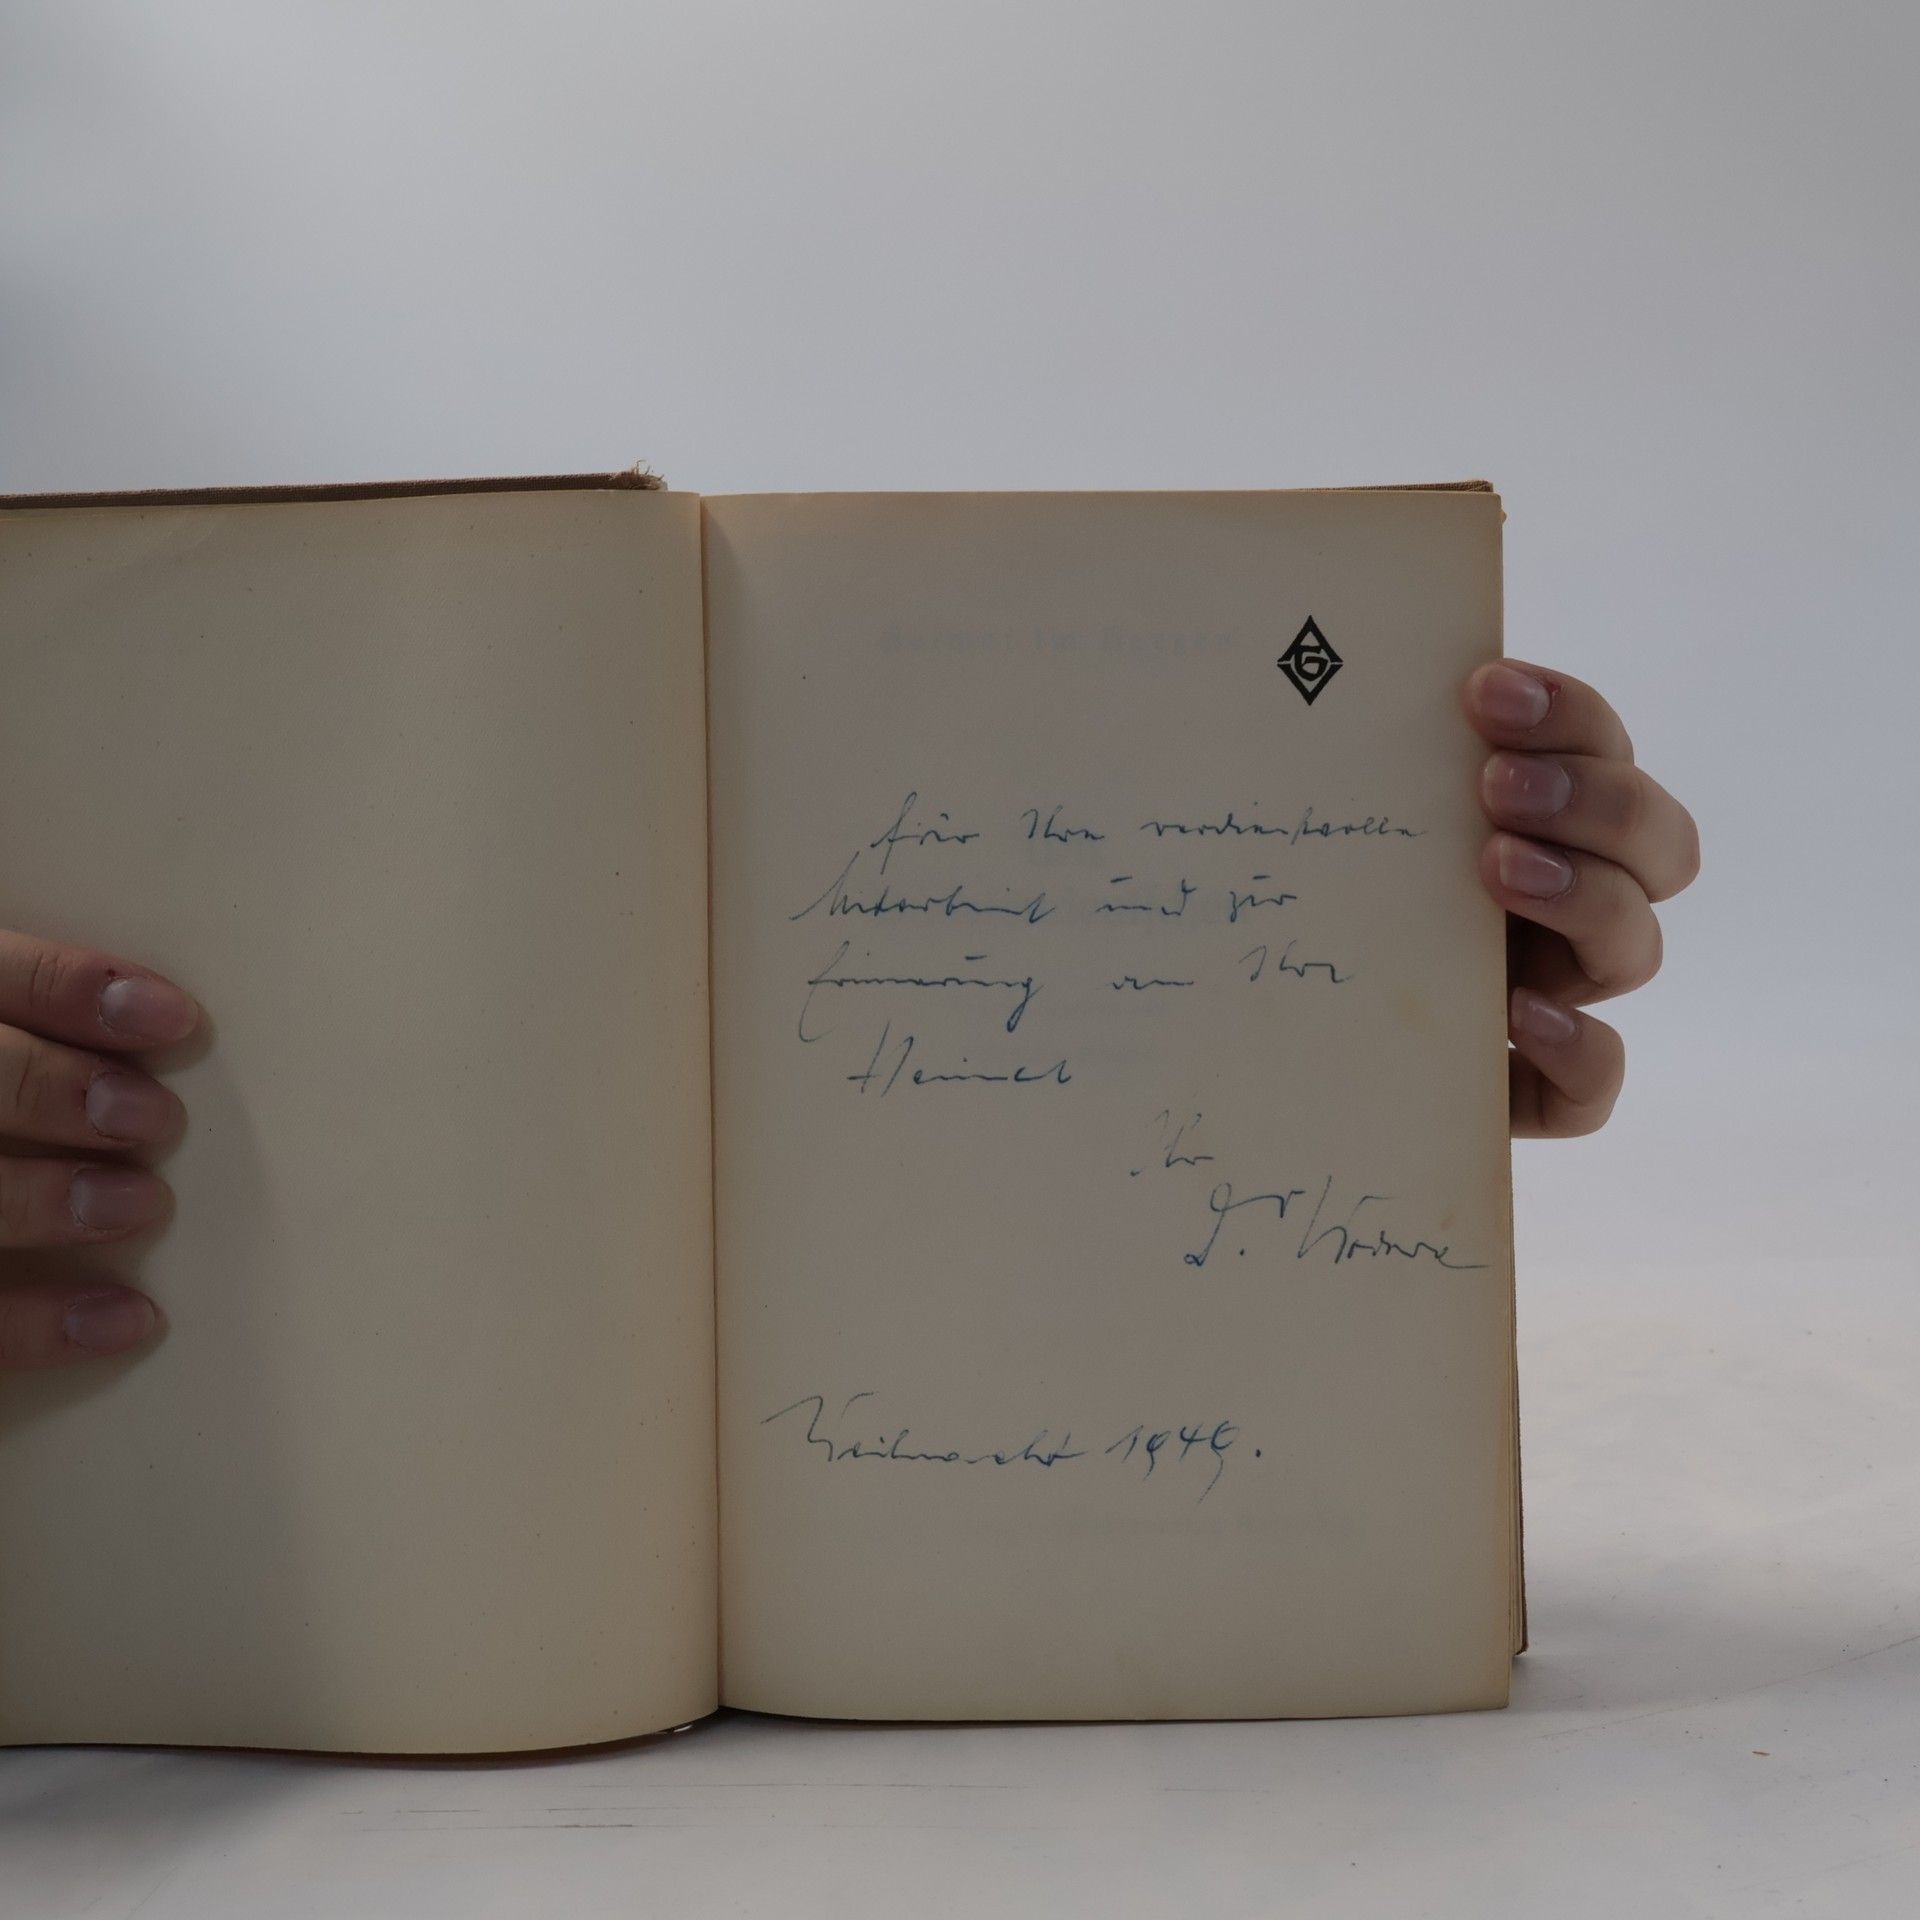 G
für Ihre verdienstvolle
Mitarbeit und zur
Erinnerung an Ihre
Heimat
Ihr
Dr.
Weihnacht 1949.